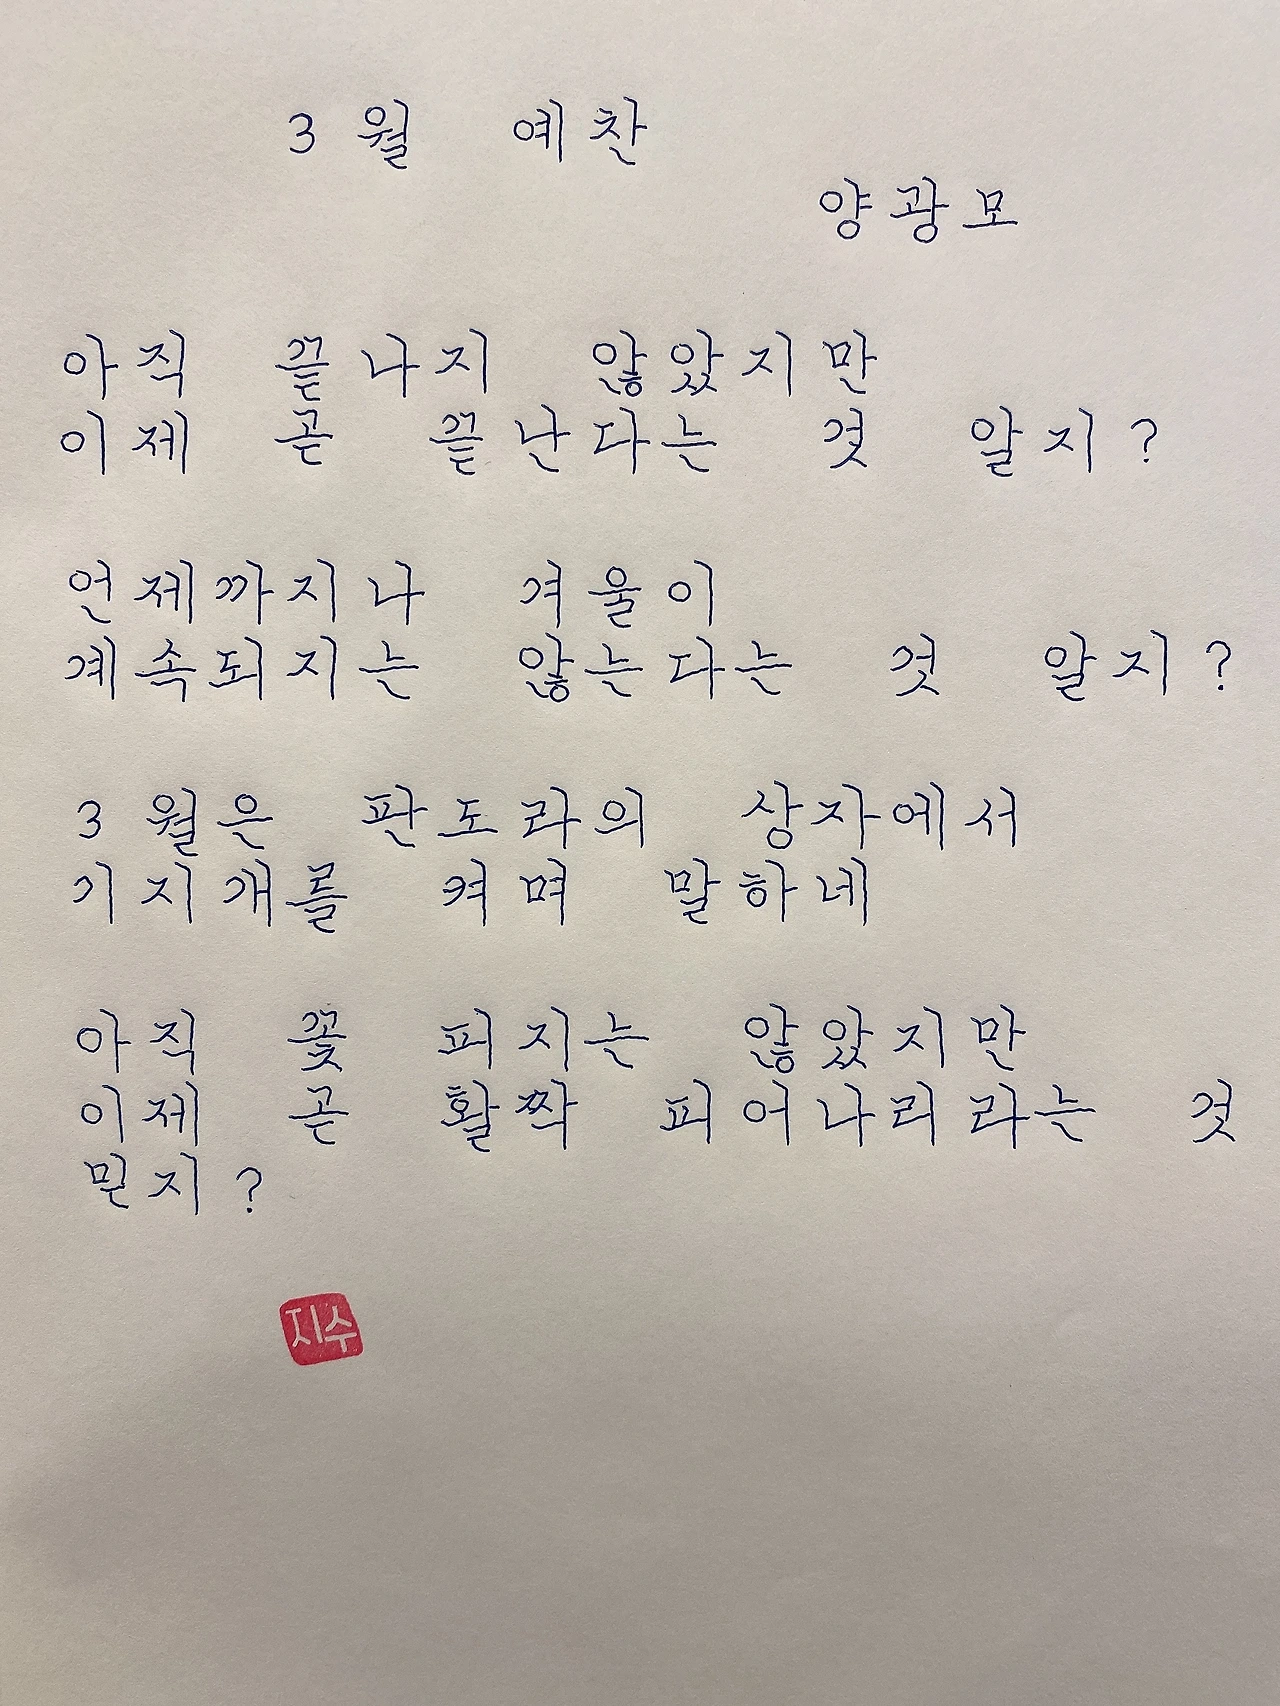 3월 예찬
양광모
아직 끝나지 않았지만
이제 곧 끝난다는 것 알지?
언제까지나 겨울이
계속되지는 않는다는 것 알지?
3월은 판도라의 상자에서
기지개를 켜며 말하네
아직 꽃 피지는 않았지만
이제 곧 활짝 피어나리라는 것
믿지?
지수